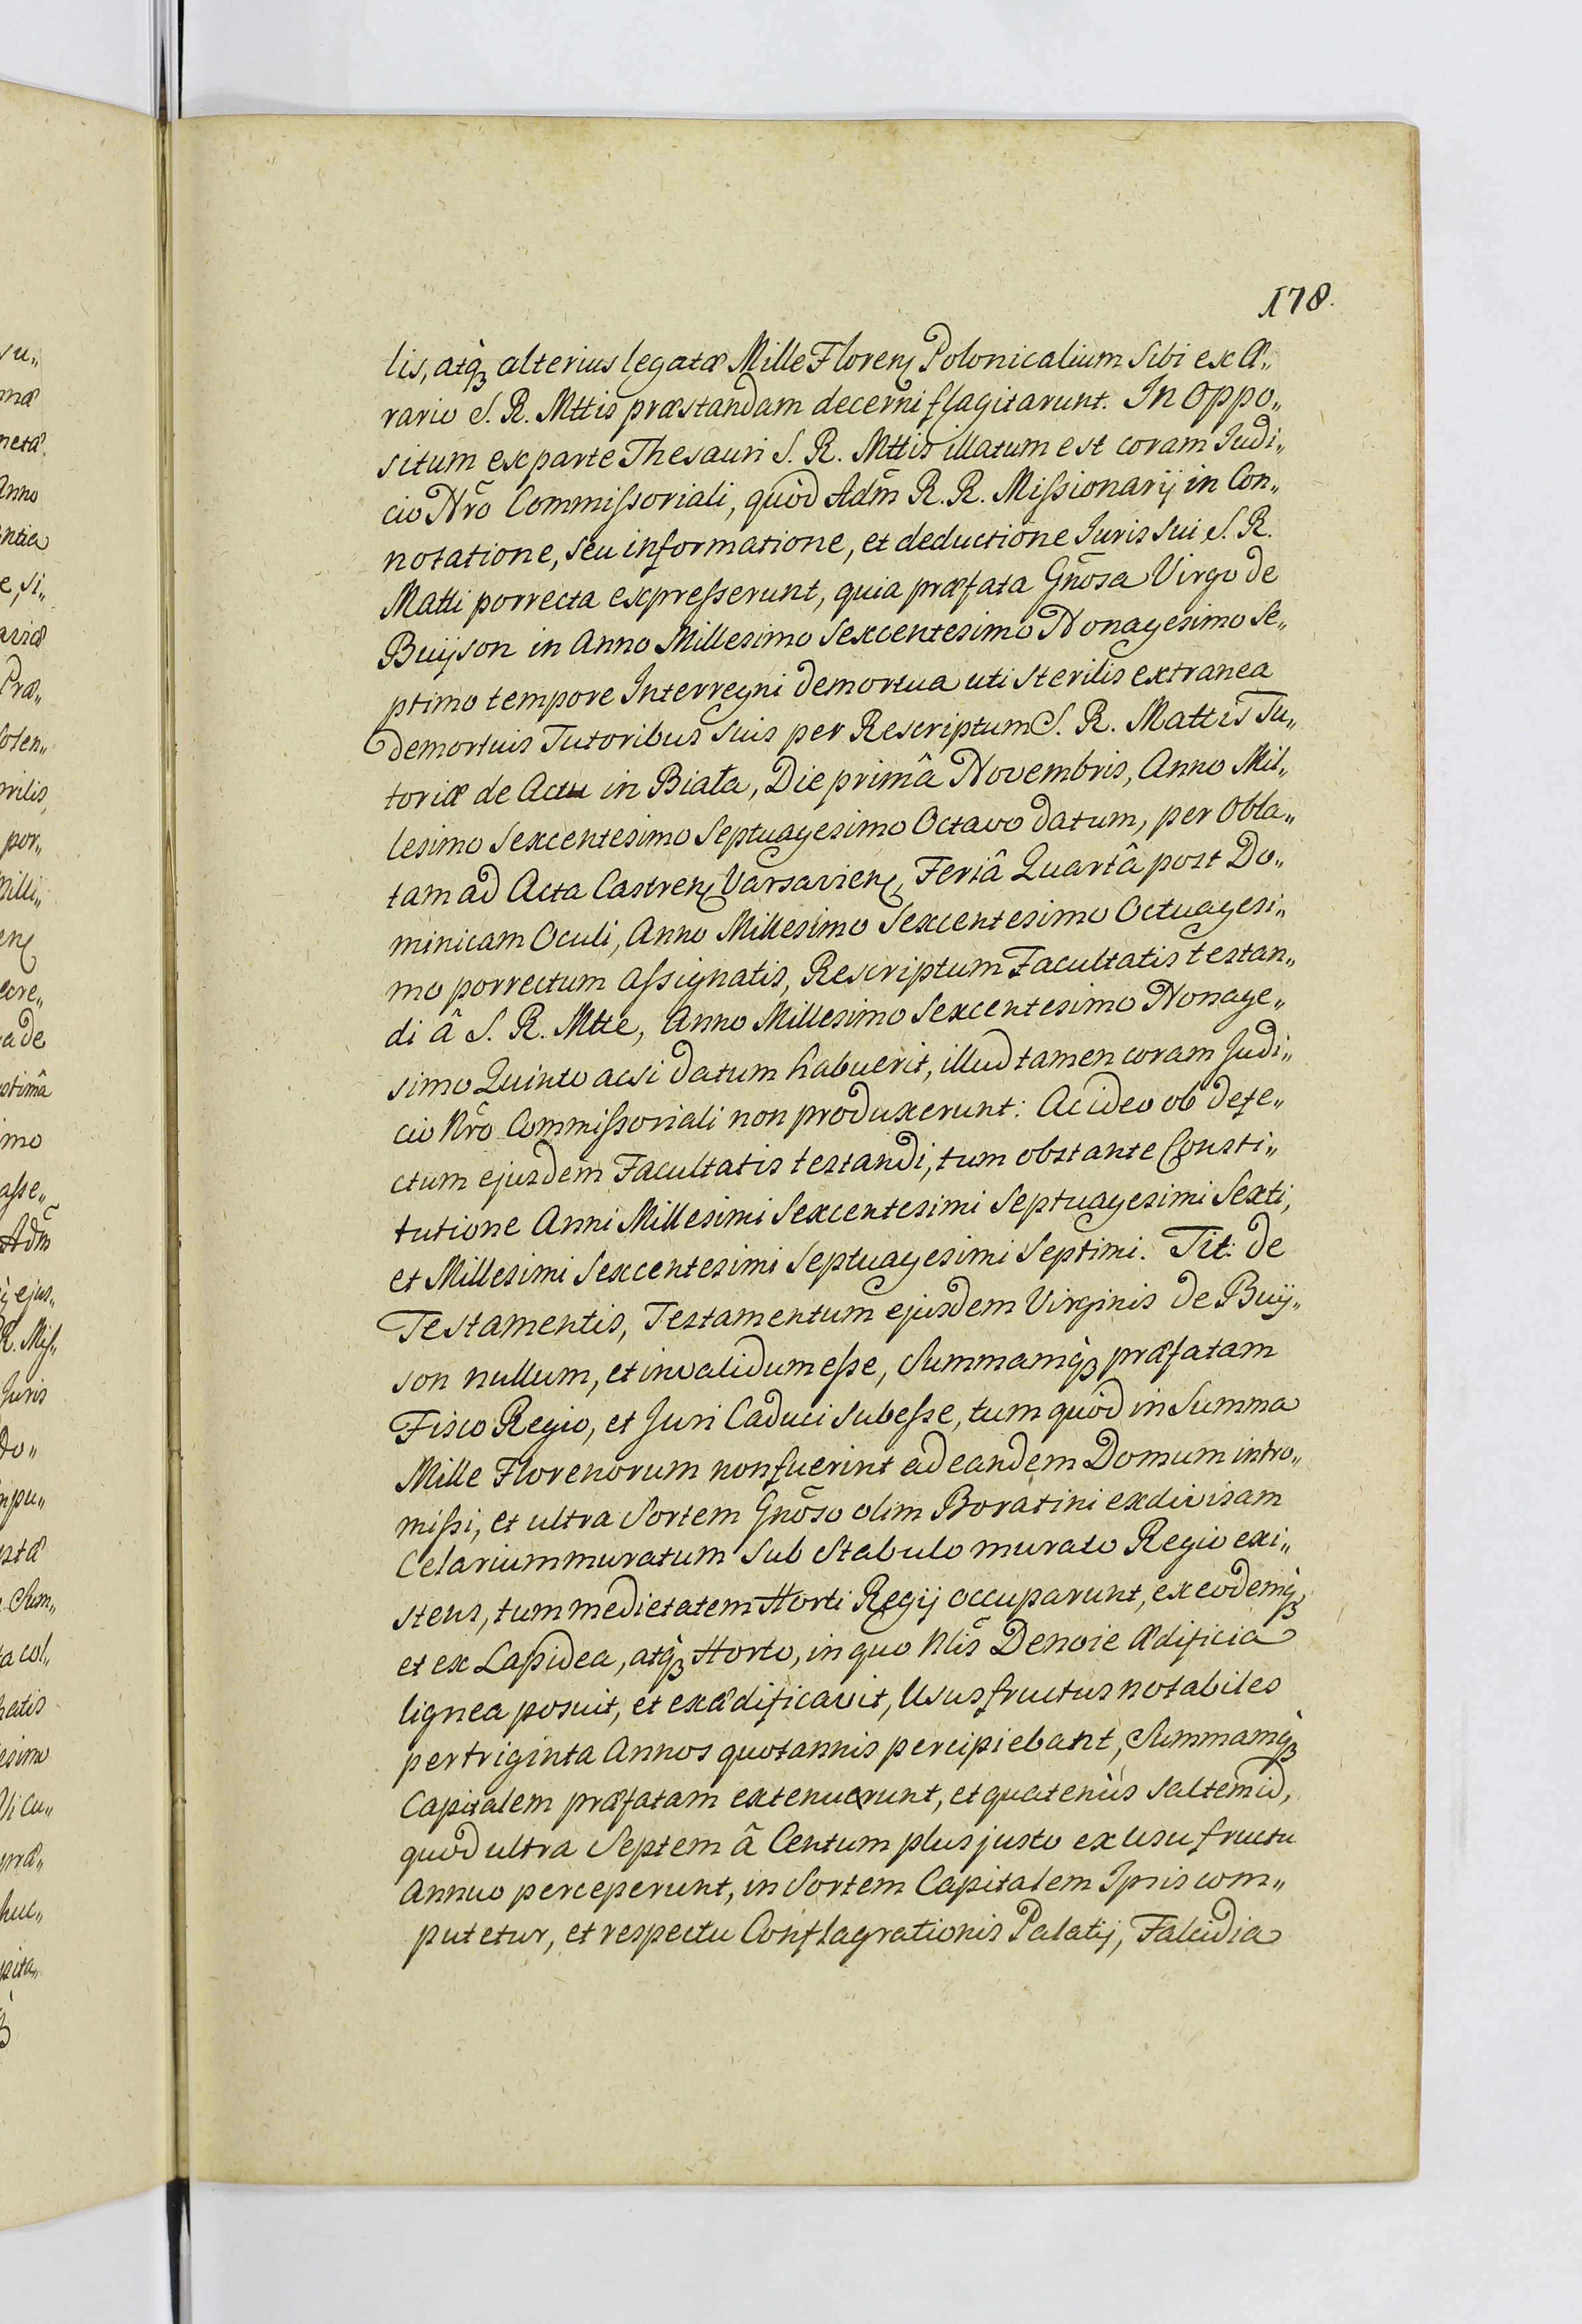 178.
lis, atq3 alterius legatæ Mille Floren Polonicalium Sibi ex Æ„
rario S. R. Mttis præstandam decerni flagitarunt. In Oppo„
situm ex parte Thesauri S. R. Mttis illatum est coram Judi„
cio Nr̃o Commissoriali, quòd Adm̃ R. R. Missionarij in Con„
notatione, seu informatione, et deductione Juris sui S. R.
Matti porrecta expresserunt, quia præfata Gnõsa Virgo de
Buijson in Anno Millesimo Sexcentesimo Nonagesimo Se„
ptimo tempore Interregni demortua uti sterilis extranea
demortuis Tutoribus suis per Rescriptum S. R. Mattis Tu„
toriæ de Actu in Biała, Die primâ Novembris, Anno Mil„
lesimo Sexcentesimo Septuagesimo Octavo datum, per Obla„
tam ad Acta Castren Varsavien, Feriâ Quartâ post Do„
minicam Oculi, Anno Millesimo Sexcentesimo Octuagesi„
mo porrectum assignatis, Rescriptum Facultatis testan„
di â S. R. Mtte, Anno Millesimo Sexcentesimo Nonage„
simo Quinto acsi datum habuerit, illud tamen coram Judi„
cio Nr̃o Commissoriali non produxerunt: Ac ideo ob defe„
ctum ejusdem Facultatis testandi, tum obstante Consti„
tutione Anni Millesimi Sexcentesimi Septuagesimi Sexti,
et Millesimi Sexcentesimi Septuagesimi Septimi. Tit: de
Testamentis, Testamentum ejusdem Virginis de Buij„
son nullum, et invalidum esse, Summamq3 præfatam
Fisco Regio, et Juri Caduci subesse, tum quòd in Summa
Mille Florenorum non fuerint ad eandem Domum intro„
missi, et ultra Sortem Gnõso olim Boratini exdivisam
Celarium muratum sub Stabulo murato Regio exi„
stens, tum medietatem Horti Regij occuparunt, ex eodemq3
et ex Lapidea, atq3 Horto, in quo Nlis̃ Denoie Ædificia
lignea posuit, et exædificavit, Ususfructus notabiles
per triginta Annos quotannis percipiebant, Summamq3
Capitalem præfatam extenuerunt, et quatenùs saltem id,
quod ultra Septem â Centum plus justo ex usufructu
Annuo perceperunt, in Sortem Capitalem Ipsis com„
putetur, et respectu Conflagrationis Palatij, Falcidia